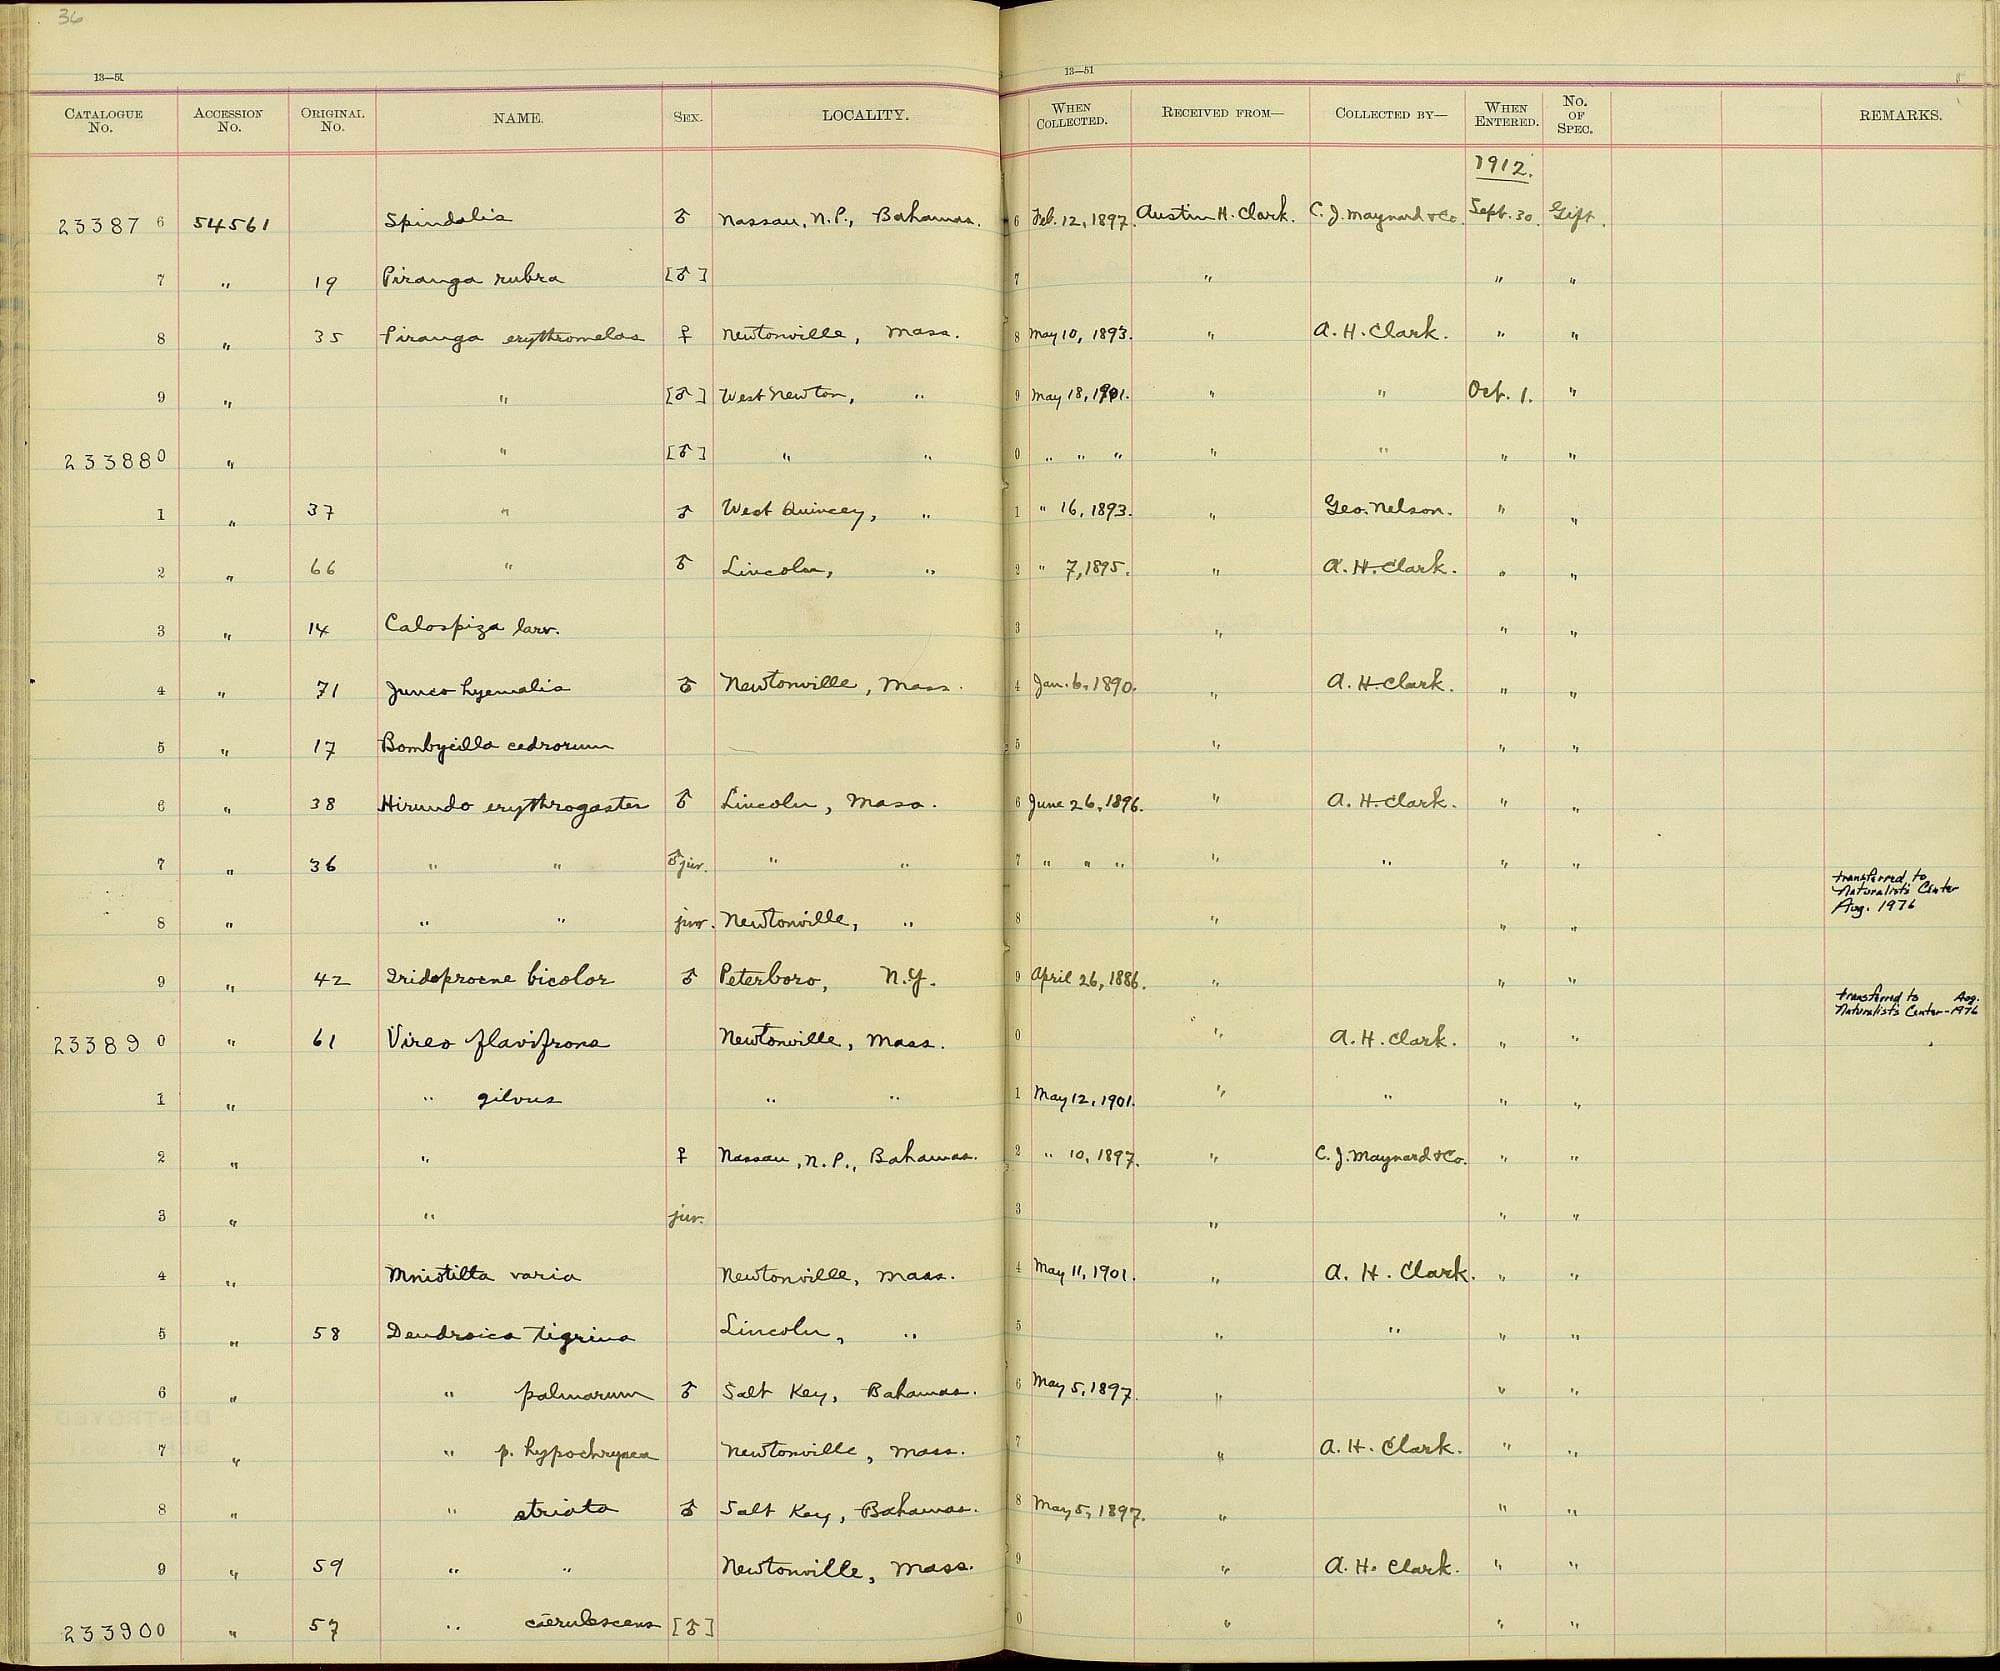 36
13—51
13—51
CATALOGUE No. ACCESSION No. ORIGINAL No. NAME. SEX. LOCALITY. WHEN COLLECTED. RECEIVED FROM— COLLECTED BY— WHEN ENTERED. No. OF SPEC. REMARKS.
1912.
233876 54561 Spindalis ♂ Nassau, N.P., Bahamas. 6 Feb. 12, 1897. Austin H. Clark. C. J. Maynard & Co. Sept. 30. Gift.
7 " 19 Piranga rubra [♂] 7 " " "
8 " 35 Piranga erythromelas ♀ Newtonville, Mass. 8 May 10, 1893. " A. H. Clark. " "
9 " " [♂] West Newton, " 9 May 18, 1901. " " Oct. 1. "
233880 " " [♂] " " 0 " " " " " " "
1 " 37 " ♂ West Quincey, " 1 " 16, 1893. " Geo. Nelson. " "
2 " 66 " ♂ Lincoln, " 2 " 7, 1895. " A. H. Clark. " "
3 " 14 Calospiza larv. 3 " " "
4 " 71 Junco hyemalis ♂ Newtonville, Mass. 4 Jan. 6, 1890. " A. H. Clark. " "
5 " 17 Bombycilla cedrorum 5 " " "
6 " 38 Hirundo erythrogaster ♂ Lincoln, Mass. 6 June 26, 1896. " A. H. Clark. " "
7 " 36 " " ♂ juv. " " 7 " " " " " " "
transferred to
Naturalist's Center
Aug. 1976
8 " " " juv. Newtonville, " 8 " " "
9 " 42 Iridoprocne bicolor ♂ Peterboro, N.Y. 9 April 26, 1886. " " "
transferred to Aug.
Naturalist's Center - 1976
233890 " 61 Vireo flavifrons Newtonville, Mass. 0 " A. H. Clark. " "
1 " " gilvus " " 1 May 12, 1901. " " " "
2 " " ♀ Nassau, N.P., Bahamas. 2 " 10, 1897. " C. J. Maynard & Co. " "
3 " " juv. 3 " " "
4 " Mniotilta varia Newtonville, Mass. 4 May 11, 1901. " A. H. Clark. " "
5 " 58 Dendroica tigrina Lincoln, " 5 " " " "
6 " " palmarum ♂ Salt Key, Bahamas. 6 May 5, 1897. " " "
7 " " p. hypochrysea Newtonville, Mass. 7 " A. H. Clark. " "
8 " " striata ♂ Salt Key, Bahamas. 8 May 5, 1897. " " "
9 " 59 " " Newtonville, Mass. 9 " A. H. Clark. " "
233900 " 57 " caerulescens [♂] 0 " " "